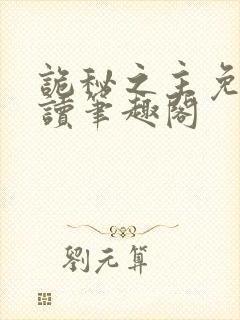 詭秘之主免
讀筆趣閣
劉元算